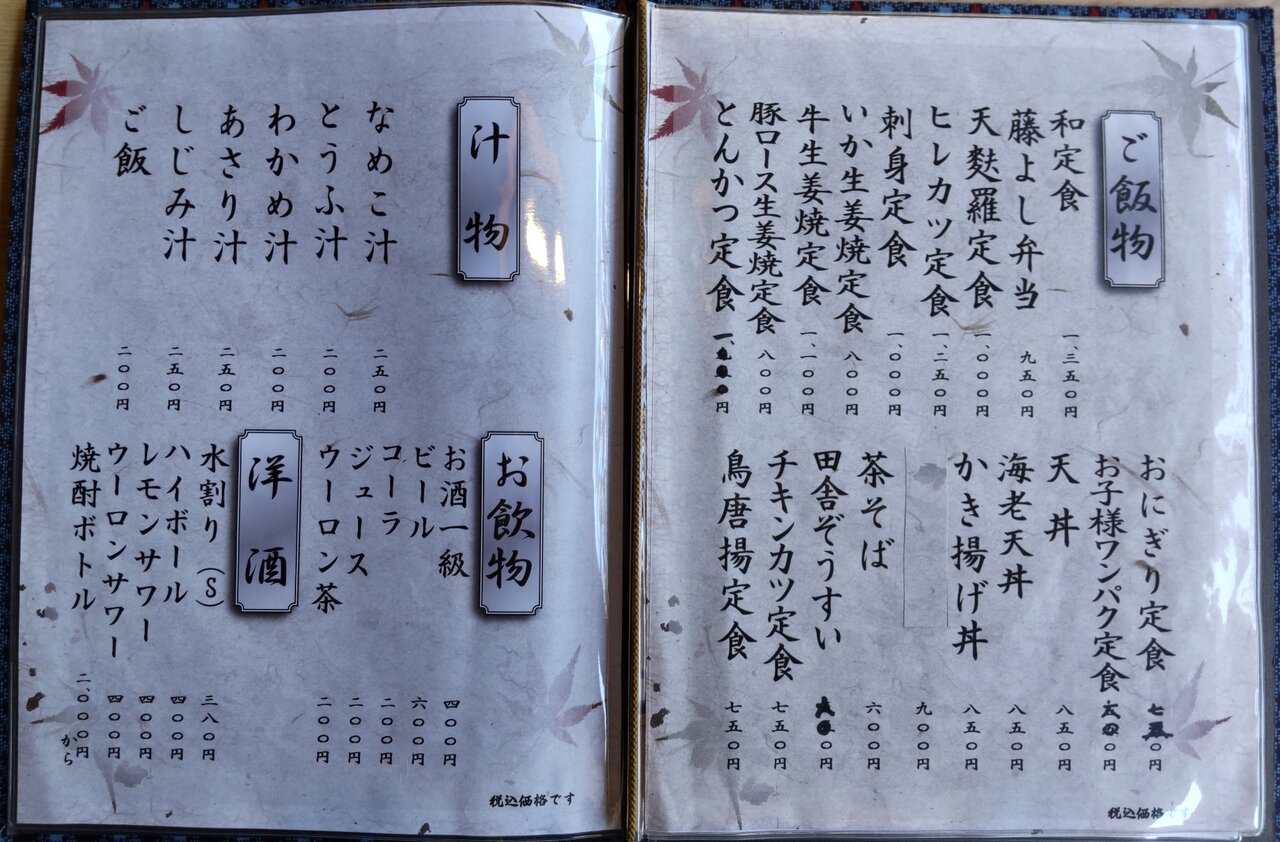 ご飯物
和定食 一、三五〇円
藤よし弁当 九五〇円
天麩羅定食 一、〇〇〇円
ヒレカツ定食 一、二五〇円
刺身定食 一、〇〇〇円
いか生姜焼定食 八〇〇円
牛生姜焼定食 一、一〇〇円
豚ロース生姜焼定食 八〇〇円
とんかつ定食
おにぎり定食
お子様ワンパク定食
天丼 八五〇円
海老天丼 八五〇円
かき揚げ丼 八五〇円
九〇〇円
茶そば 六〇〇円
田舎ぞうすい
チキンカツ定食 七五〇円
鳥唐揚定食 七五〇円
税込価格です
汁物
なめこ汁 二五〇円
とうふ汁 二〇〇円
わかめ汁 二〇〇円
あさり汁 二五〇円
しじみ汁 二五〇円
ご飯 二〇〇円
お飲物
お酒一級 四〇〇円
ビール 六〇〇円
コーラ 二〇〇円
ジュース 二〇〇円
ウーロン茶 二〇〇円
洋酒
水割り(S) 三八〇円
ハイボール 四〇〇円
レモンサワー 四〇〇円
ウーロンサワー 四〇〇円
焼酎ボトル 二、〇〇〇円から
税込価格です